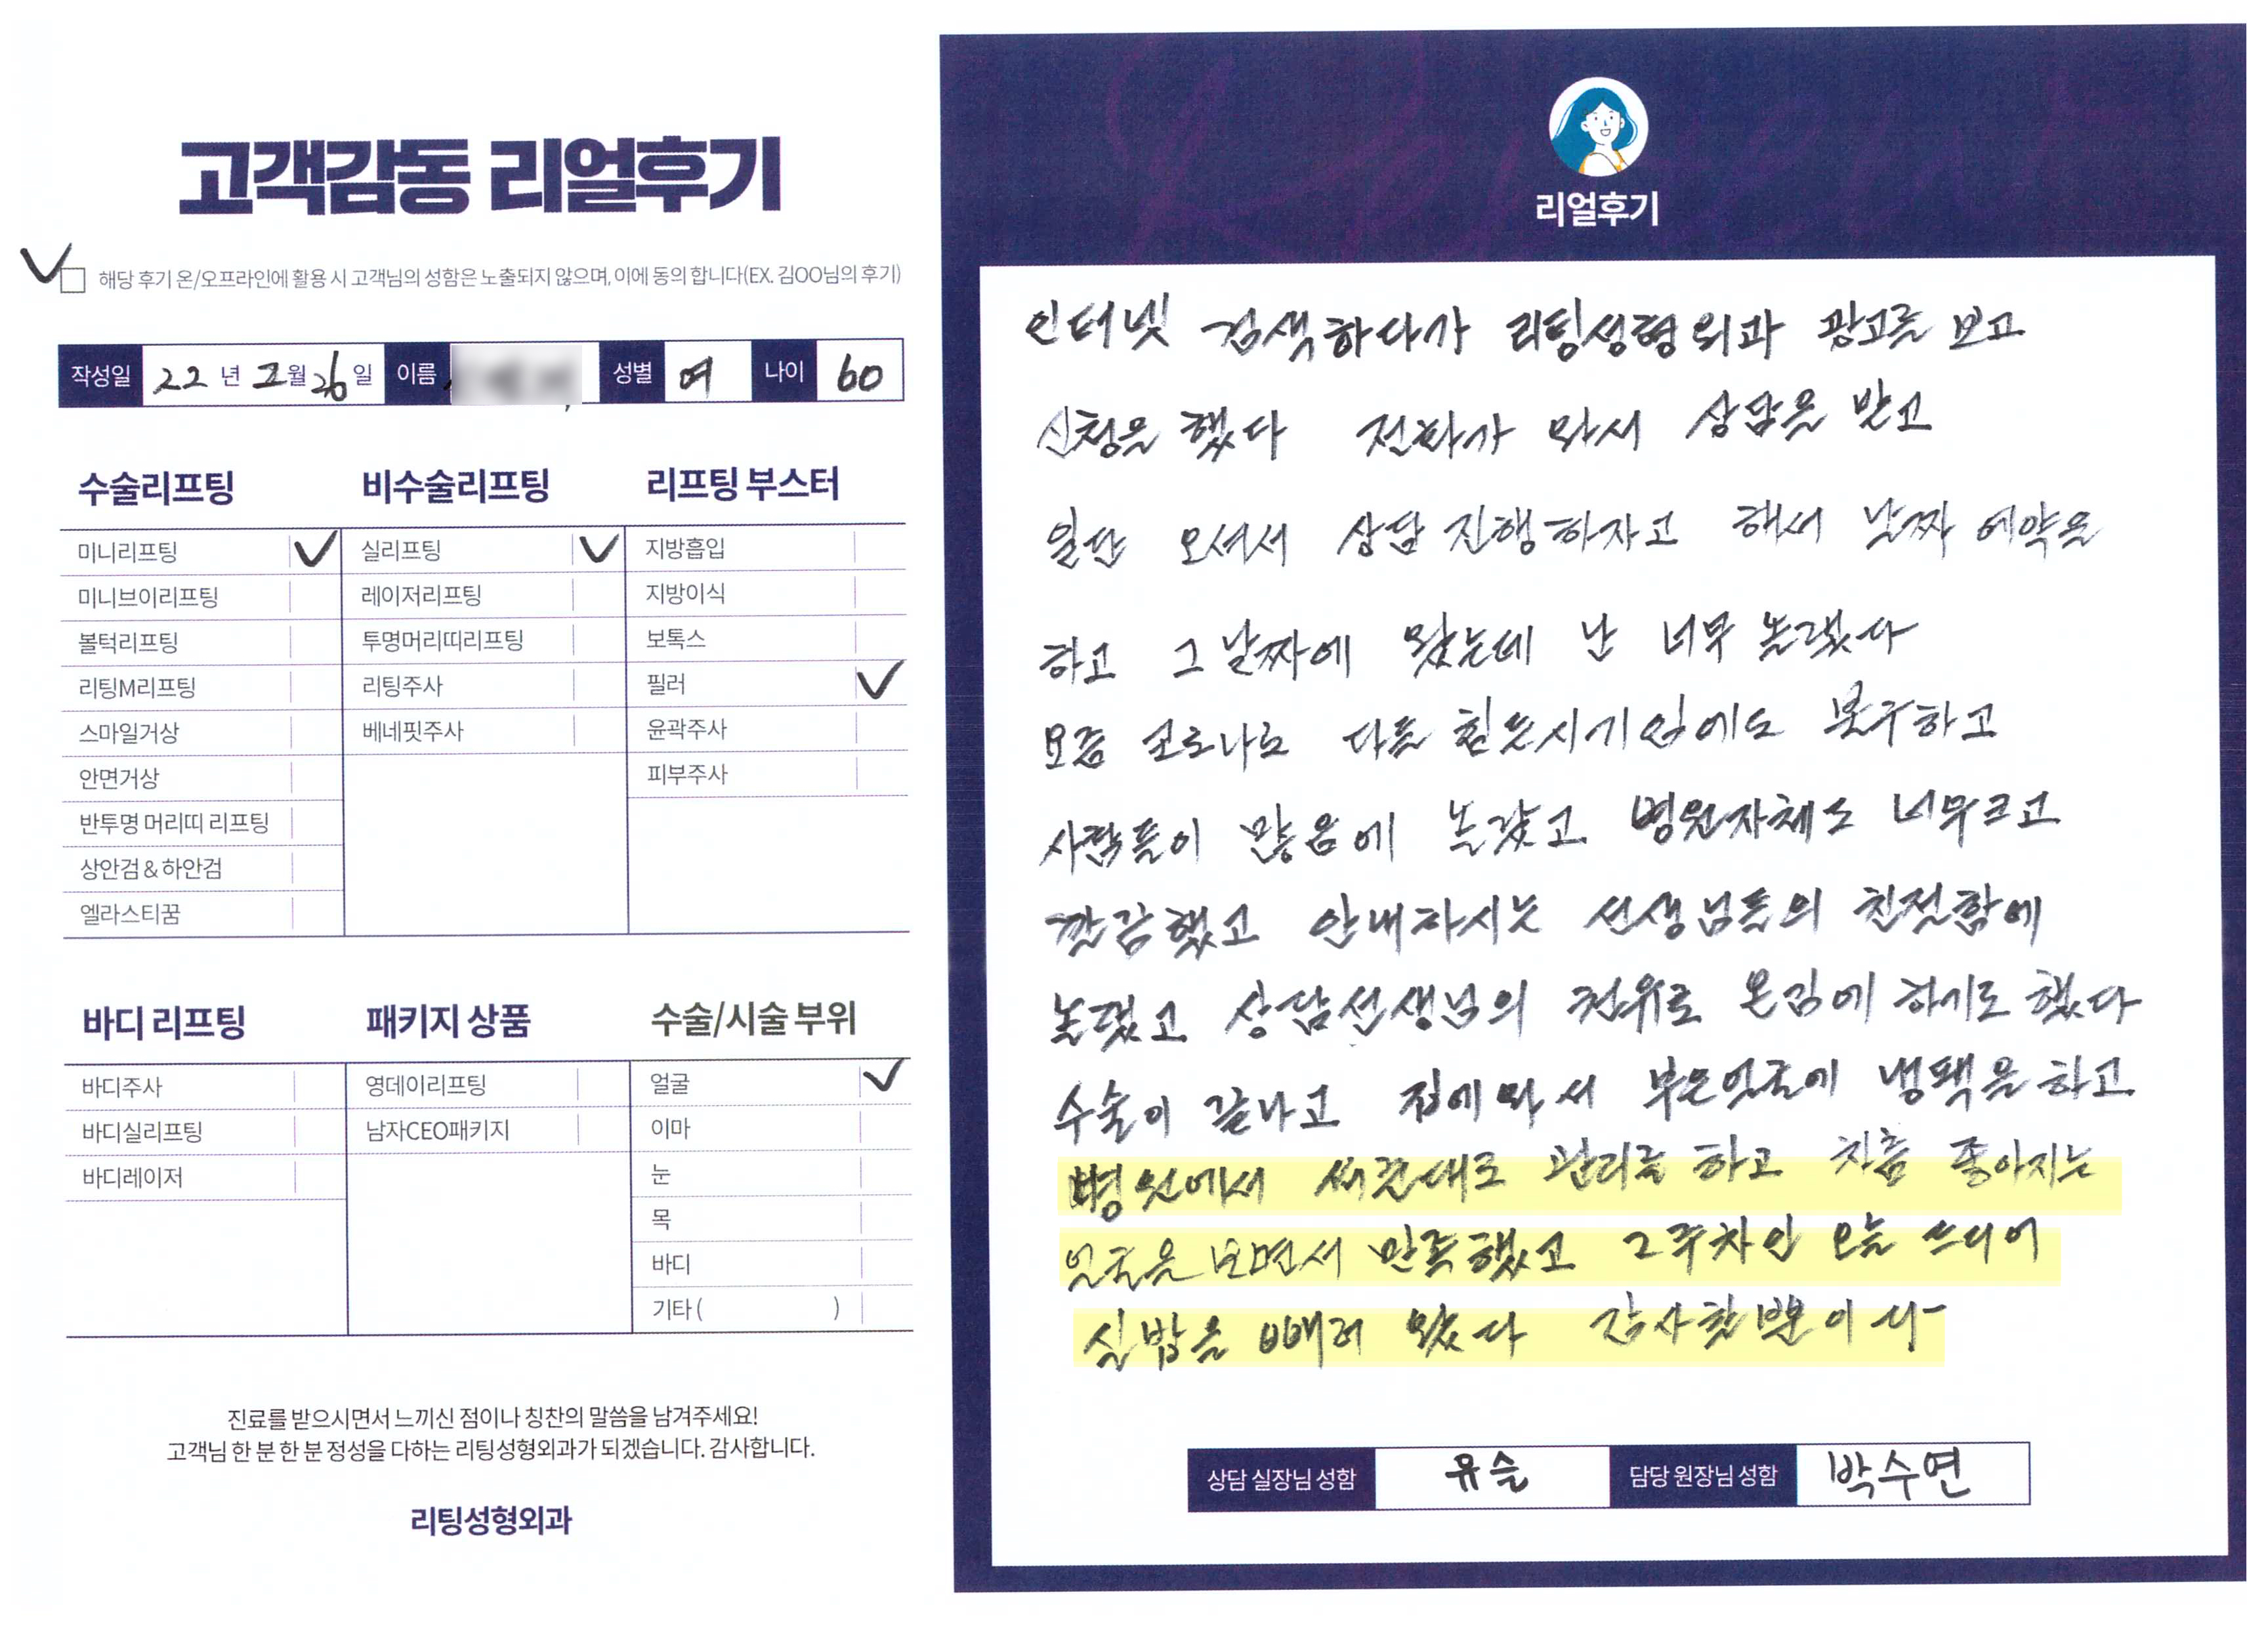 고객감동 리얼후기
해당 후기 온/오프라인에 활용 시 고객님의 성함은 노출되지 않으며, 이에 동의 합니다(EX. 김OO님의 후기)
작성일 22 년 2 월 26 일 이름 성별 여 나이 60
수술리프팅 비수술리프팅 리프팅 부스터
미니리프팅 실리프팅 지방흡입
미니브이리프팅 레이저리프팅 지방이식
볼턱리프팅 투명머리띠리프팅 보톡스
리팅M리프팅 리팅주사 필러
스마일거상 베네핏주사 윤곽주사
안면거상 피부주사
반투명 머리띠 리프팅
상안검 & 하안검
엘라스티꿈
바디 리프팅 패키지 상품 수술/시술 부위
바디주사 영데이리프팅 얼굴
바디실리프팅 남자CEO패키지 이마
바디레이저 눈
목
바디
기타 ( )
진료를 받으시면서 느끼신 점이나 칭찬의 말씀을 남겨주세요!
고객님 한 분 한 분 정성을 다하는 리팅성형외과가 되겠습니다. 감사합니다.
리팅성형외과
리얼후기
인터넷 검색하다가 리팅성형외과 광고를 보고
신청을 했다 전화가 와서 상담을 받고
일단 오셔서 상담 진행하자고 해서 날짜 예약을
하고 그날짜에 왔는데 난 너무 놀랬다
요즘 코로나로 다들 힘든시기임에도 불구하고
사람들이 많음에 놀랐고 병원자체도 너무크고
깔끔했고 안내하시는 선생님들의 친절함에
놀랬고 상담선생님의 권유로 온김에 하기로 했다
수술이 끝나고 집에와서 부은얼굴에 냉팩을 하고
병원에서 관리를 하고 차츰 좋아지는
얼굴을 보면서 만족했고 2주차인 오늘 드디어
실밥을 빼러 왔다
상담 실장님 성함 유슬 담당 원장님 성함 박수연